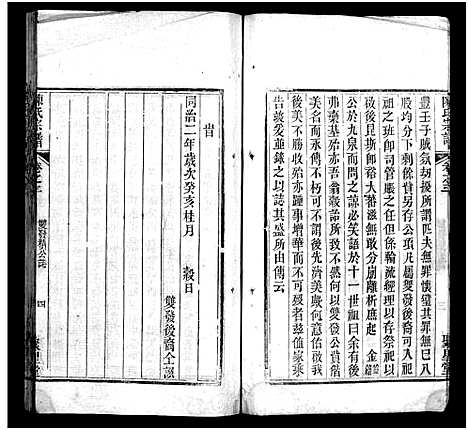 豐壬子賊氛胡擾所謂匹夫無罪懷璧其罪無已八
股均分下剩餘貲另存公項凡屬雙發後裔可入祀
祖之班即司管嚴之任但係輪流經理以存祭祀以
後從昆斯師裕大蕃滋無敢分崩離析底起
公於九泉而問之諒必笑語於十一世祖曰余有後
弗棄基殆亦穀詒所致不然何以雙發公貲偕
美名而永傳不朽可不謂後先濟美嚴何意咸
美不勝收殆亦踵事增華而不自知者茲值家乘
告竣爰並錄之以誌其盛所由傳云
旹
同治二年歲次癸亥桂月 穀日
雙發後裔仝識
陳氏宗譜
四